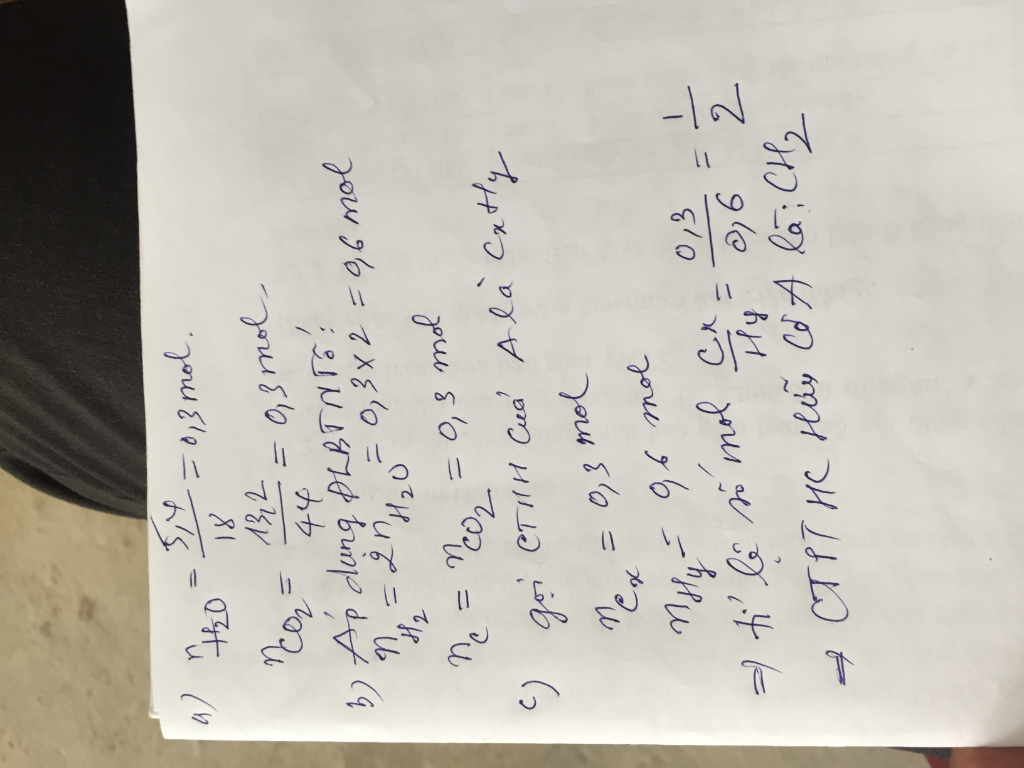 a) nH₂O = 5,4/18 = 0,3 mol.
nCO₂ = 13,2/44 = 0,3 mol.
b) Áp dụng ĐLBTNTố:
nH₂ = 2nH₂O = 0,3x2 = 0,6 mol
nC = nCO₂ = 0,3 mol
c) gọi CTHH của A là CxHy
nCx = 0,3 mol
nHy = 0,6 mol
⇒ tỉ lệ số mol Cx/Hy = 0,3/0,6 = 1/2
⇒ CTPT HC Hữu cơ A là: CH₂